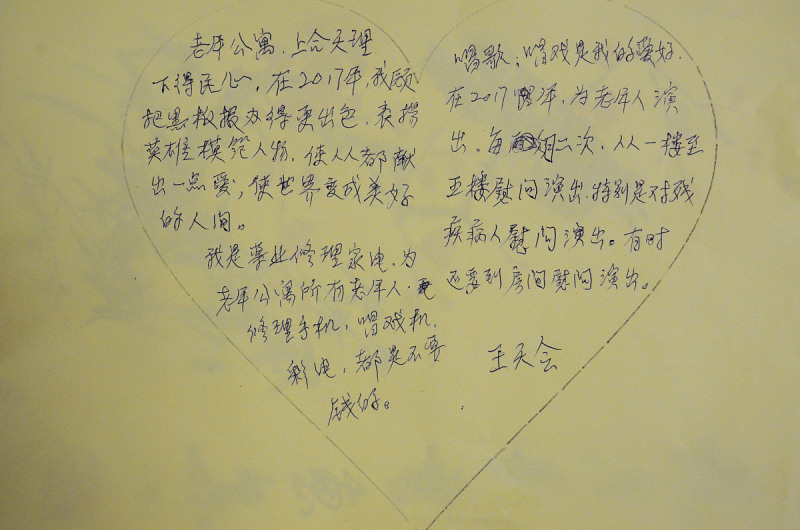 老年公寓、上合天理
下得民心，在2017年，我愿
把黑板报办得更出色，表扬
英雄模范人物，使人人都献
出一点爱，使世界变成美好
的人间。
我是专业修理家电，为
老年公寓所有老年人.
修理手机，唱戏机，
彩电，都是不要
钱的。
唱歌，唱戏是我的爱好.
在2017年，为老年人演
出，每二次，从一楼至
五楼慰问演出.特别是对残
疾病人慰问演出。有时
还要到房间慰问演出。
王天会